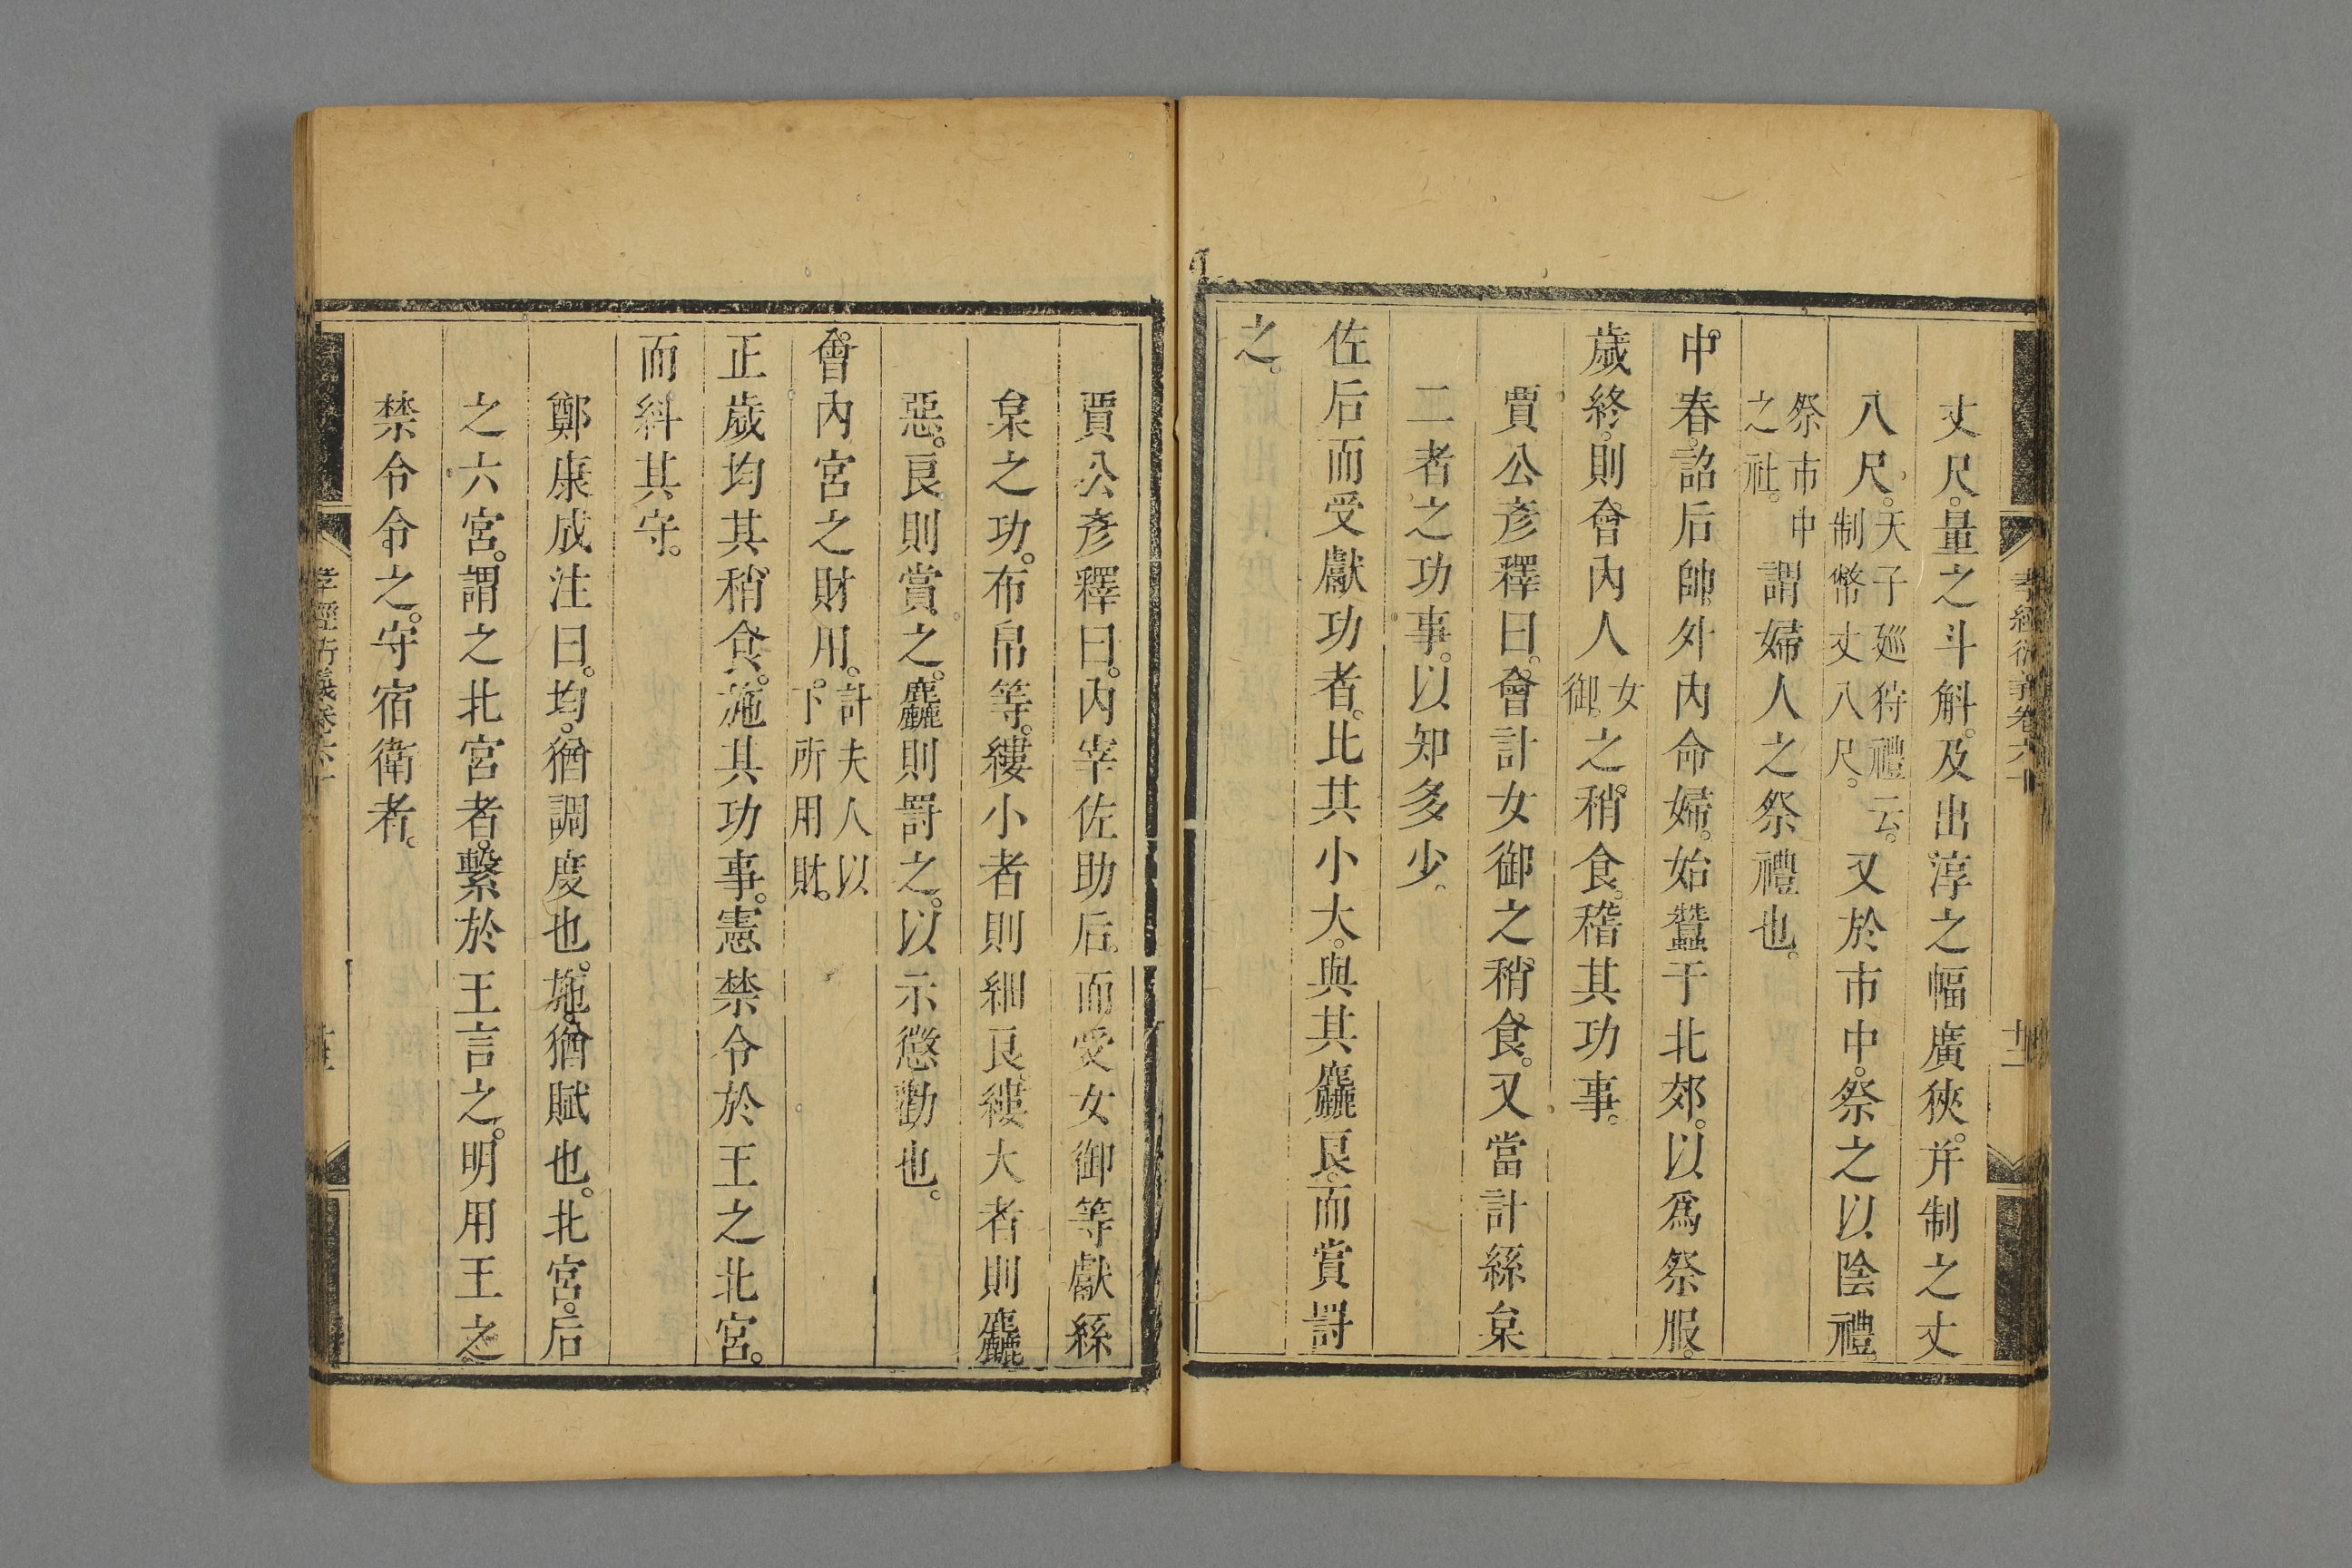 丈尺。量之斗斛。及出淳之幅廣狹。幷制之丈
八尺。天子廵狩禮云。制幣丈八尺。又於市中。祭之以陰禮。
祭市中之社。謂婦人之祭禮也。
中春。詔后帥外內命婦。始蠶于北郊。以爲祭服。
歲終。則會內人女御。之稍食。稽其功事。
賈公彥釋曰。會計女御之稍食。又當計絲枲
二者之功事。以知多少。
佐后而受獻功者。比其小大。與其麤良。而賞罸
之。
賈公彥釋曰。內宰佐助后。而受女御等獻絲
枲之功。布帛等。縷小者則細良。縷大者則麤
惡。良則賞之。麤則罸之。以示懲勸也。
會內宮之財用。計夫人以下所用財。
正歲均其稍食。施其功事。憲禁令於王之北宮。
而糾其守。
鄭康成注曰。均。猶調度也。施。猶賦也。北宮。后
之六宮。謂之北宮者。繫於王言之。明用王之
禁令令之。守宿衛者。
孝經衍義卷六十